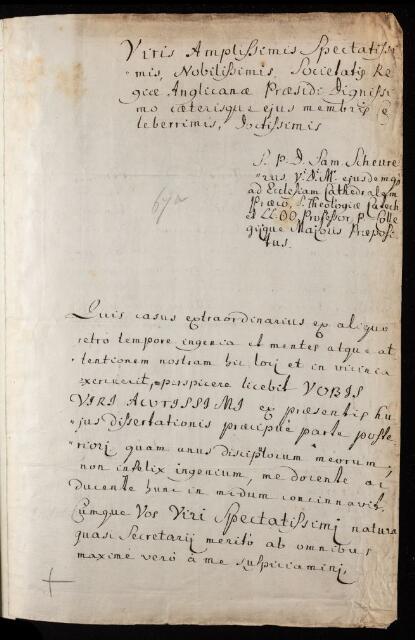 Viris Amplissimis Spectatissi-
mis, Nobilissimis, Societatis Re
giæ Anglicanæ Præsidi Dignissi
mo cæterisque ejus membris Ce
leberrimis, Doctissimis
S. P. D. Sam. Scheure
rus V. D. M. ejusdemq;
ad Ecclesiam Cathedralem
S. Theologiæ Catech
et LL. OO. Professor, p. Colle
gijque Majoris Præposi
tus.
67a
Quis casus extraordinarius ex aliquo
retro tempore ingenia et mentes atque at
tentionem nostram hic loci et in vicinia
exercuerit, perspicere licebit VOBIS
VIRI ACUTISSIMI ex præsentis hu
jus dissertationis præcipuè parte poste
riori quam unus discipulorum meorum,
non infelix ingenium, me docente ac
ducente hunc in modum concinnavit.
Cumque Vos Viri Spectatissimi naturæ
quasi Secretarij meritò ab omnibus
maximè verò à me suspiciamini,